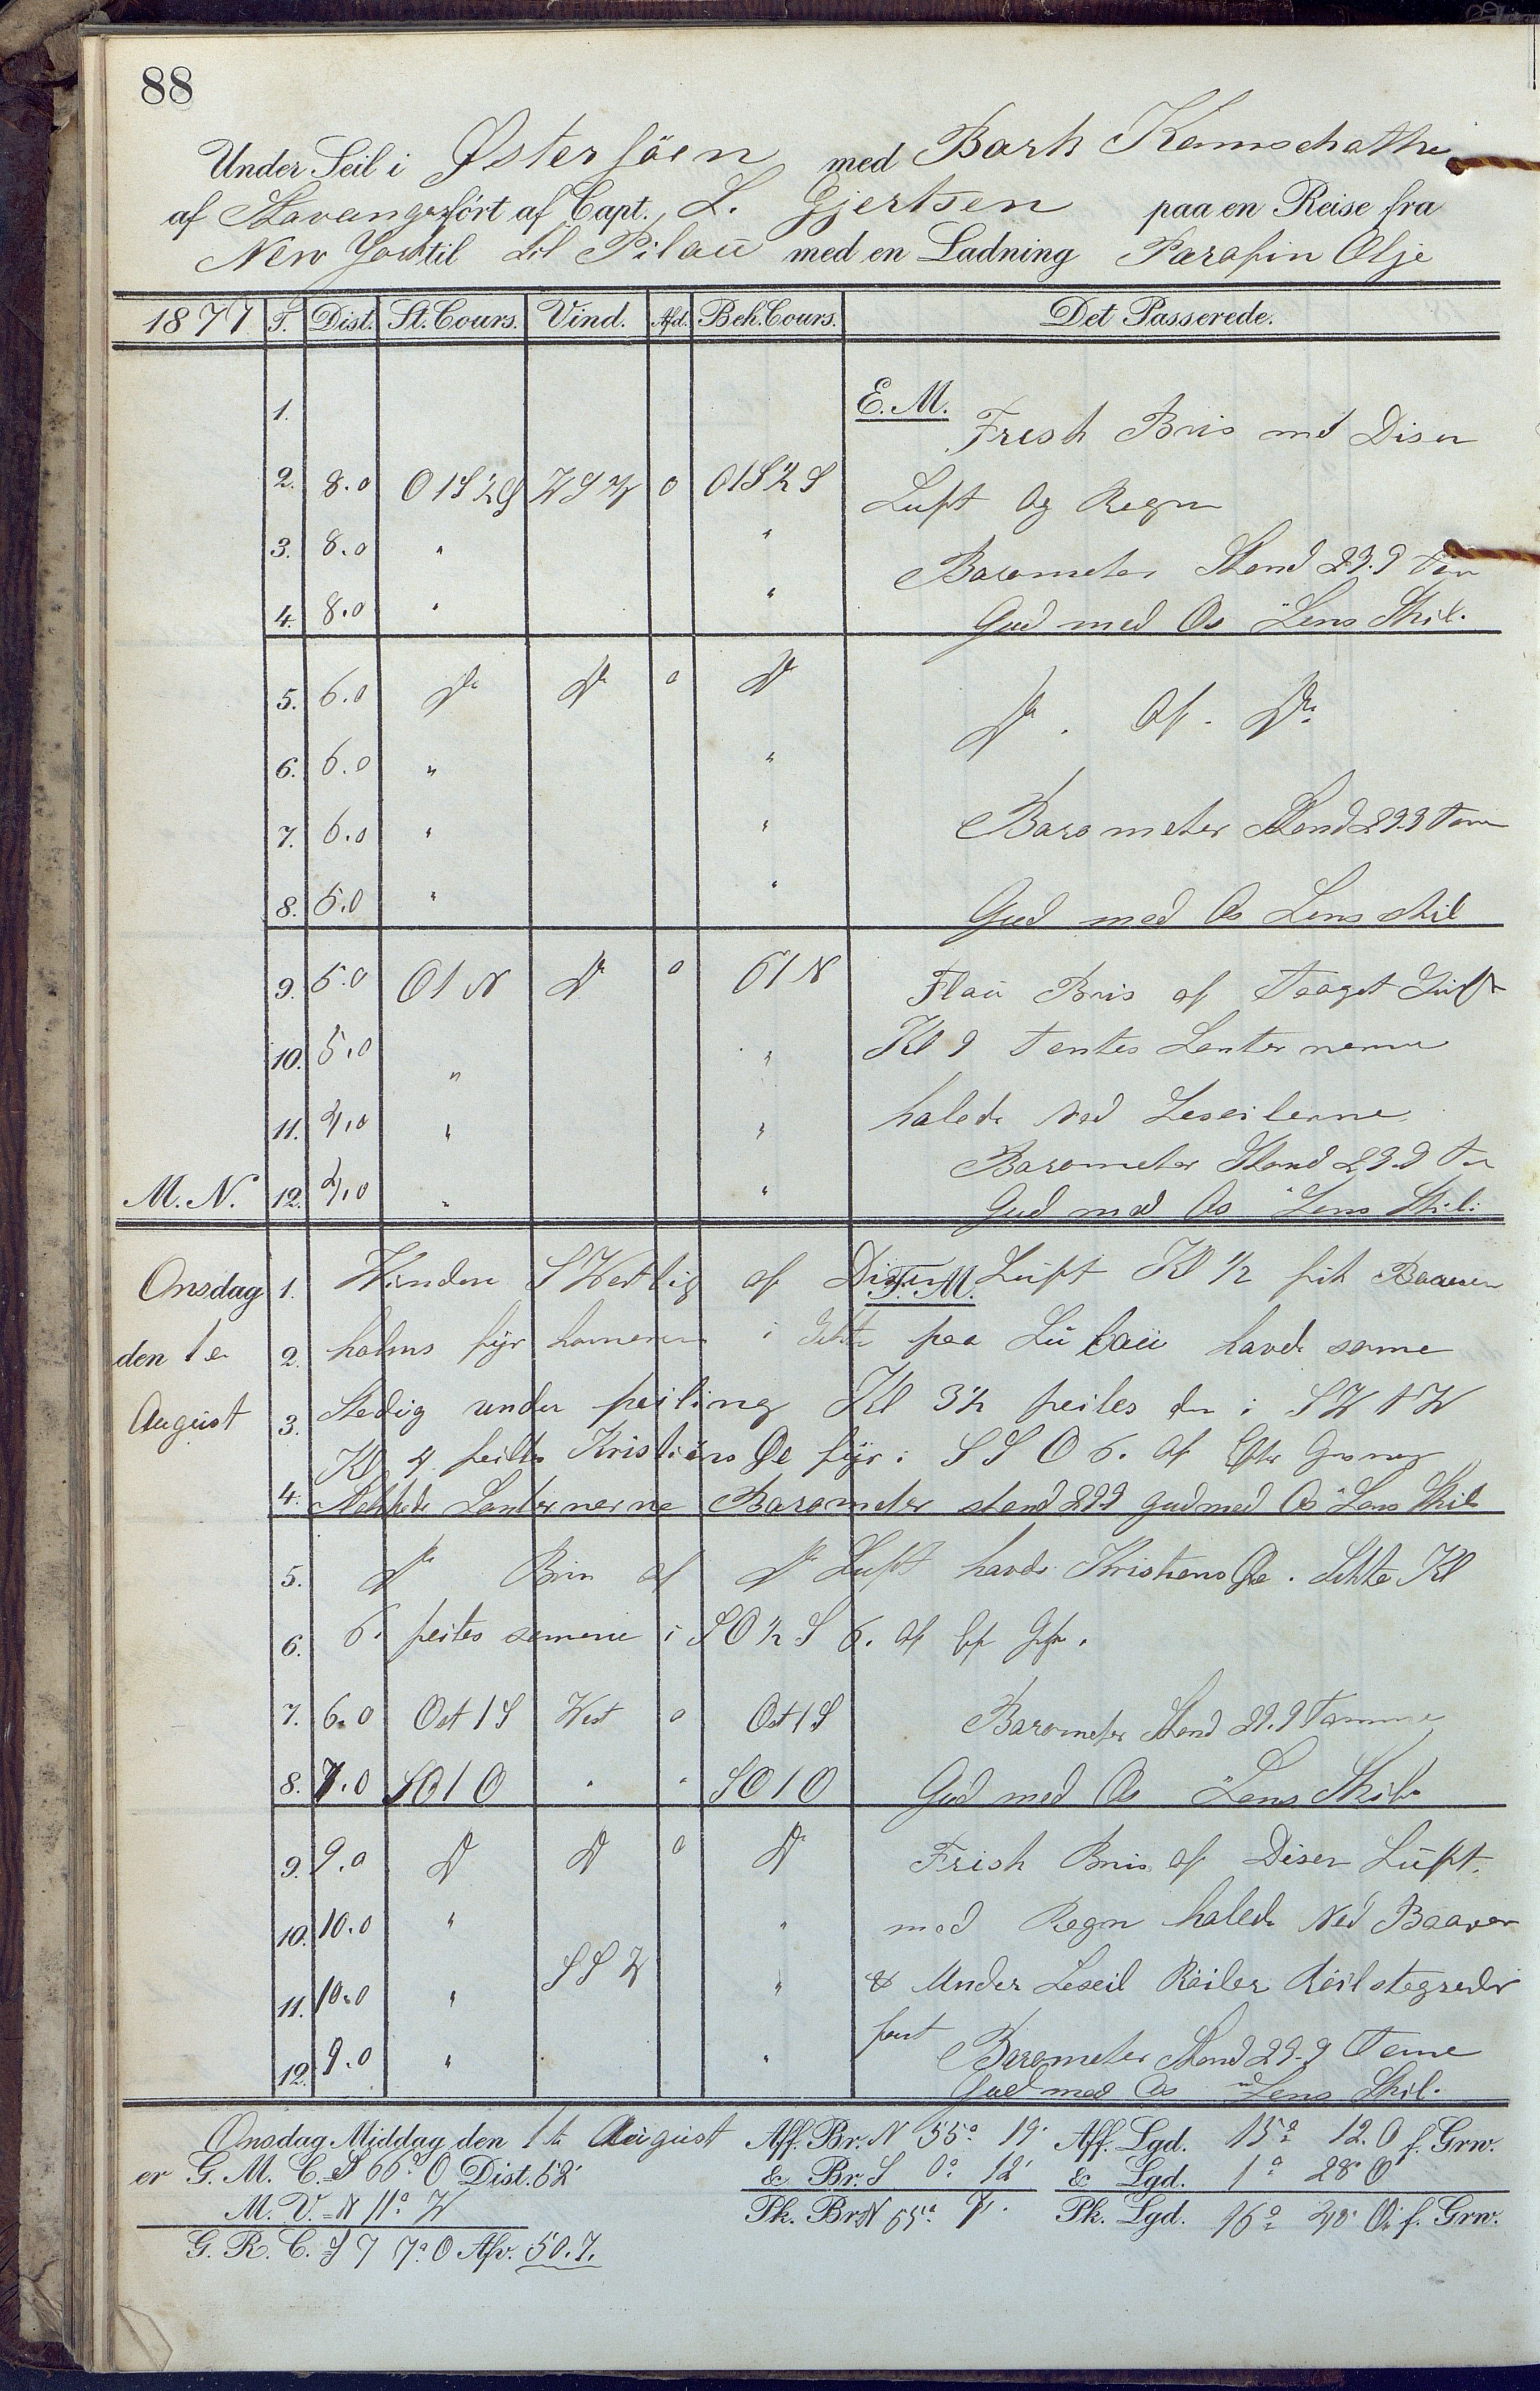 88
Under Seil i Østersöen med Bark Kamschatka
af Stavanger fört af Capt., L. Gjertsen paa en Reise fra
New York til til Pilau med en Ladning Parafin Olje
1877 T. Dist. St. Cours. Vind. Afd. Beh. Cours. Det Passerede.
1. E. M. Frisk Bris med Diser
2. 8.0 O1S½S WSW 0 O1S½S Luft og Regn
3. 8.0 " " Barometer Stand 29.9
4. 8.0 " " Gud med Os Lens Skib.
5. 6.0 Do Do 0 Do Do. Af. Do
6. 6.0 " "
7. 6.0 " " Barometer Stand 29.9 Tomme
8. 6.0 " " Gud med Os Lens skib
9. 5.0 O1N Do 0 O1N Flau Bris af Taaget Luft
10. 5.0 " " Kl 9 Tentes Lanternerne
11. 4.0 " " halede Ned Leseilerne
Barometer Stand 29.9
M. N. 12. 4.0 " " Gud med Os Lens Skib.
Onsdag 1. Vinden S Vestlig af Diser F. M. Luft Kl ½ fik
den 1e 2. holms fyr i Sikte paa Lu havde same
August 3. Stedig under peiling Kl 3½ peiles den i SW1W
Kl 4 peiltes Kristians Öe fyr i SSO 6.
4. Lanternerne Barometer stand 29.9 gud med Os Lens Skib
5. Do Bris af Do Luft havde Kristians Öe i Sikte Kl
6. 6. peiles samme i SO½S 6.
7. 6.0 Ost1S West 0 Ost1S Barometer Stand 29.9 Tomme
8. 7.0 SO1O " " SO1O Gud med Os Lens Skib.
9. 9.0 Do Do 0 Do Frisk Bris af Diser Luft.
10. 10.0 " " med Regn halede Ned Baaven
11. 10.0 " SSW " & Under Leseil Röiler
fast
Barometer Stand 29.9 Tome
12. 9.0 " " Gud med Os Lens Skib.
Onsdag Middag den 1te August Aff. Br. N 55° 19' Aff. Lgd. 15° 12. O f. Grw.
er G. M. C. S 66° O Dist. 52' & Br. S 0° 12' & Lgd. 1° 28' O
M. V. = N 11° W Pk. Br. N 55° 7'. Pk. Lgd. 16° 40' O. f. Grw.
G. R. C. S 77° O Afv. 50.7.